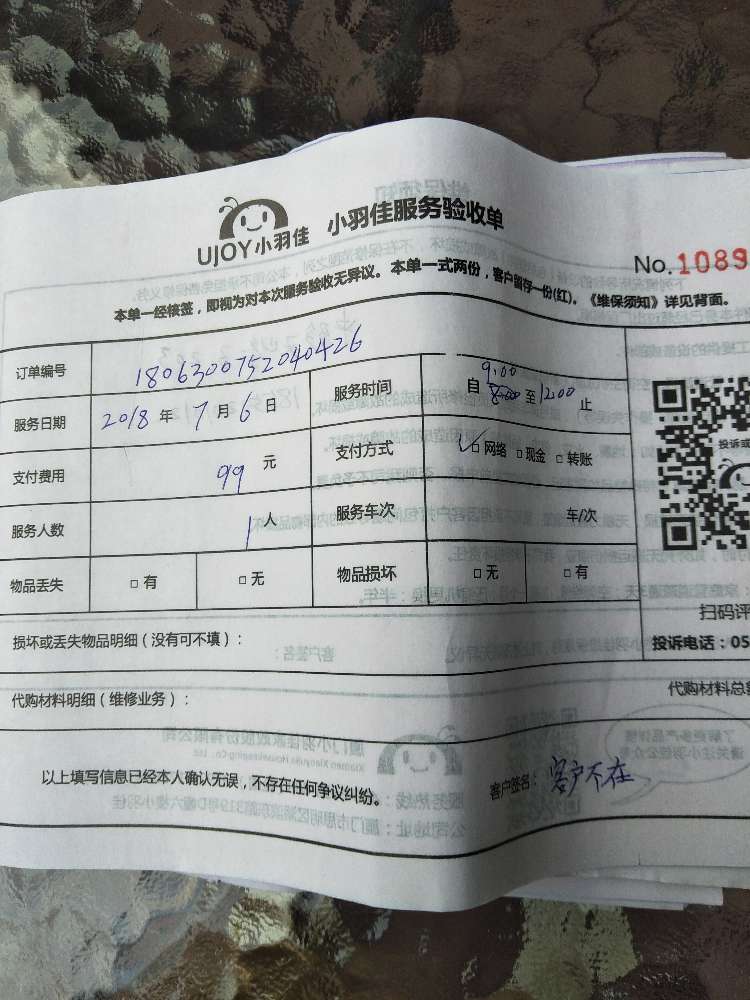 UJOY小羽佳 小羽佳服务验收单
No.1089
本单一经核签，即视为对本次服务验收无异议。本单一式两份，客户留存一份(红)。《维保须知》详见背面。
订单编号 1806300752040426
服务日期 2018 年 7 月 6 日 服务时间 自 9.00 8.00 至 12.00 止
支付费用 99 元 支付方式 ☑ 网络 □ 现金 □ 转账
服务人数 1 人 服务车次 车/次
物品丢失 □ 有 □ 无 物品损坏 □ 无 □ 有
损坏或丢失物品明细（没有可不填）：
代购材料明细（维修业务）： 代购材料总
投诉或
扫码评
投诉电话：05
以上填写信息已经本人确认无误，不存在任何争议纠纷。 客户签名：客户不在